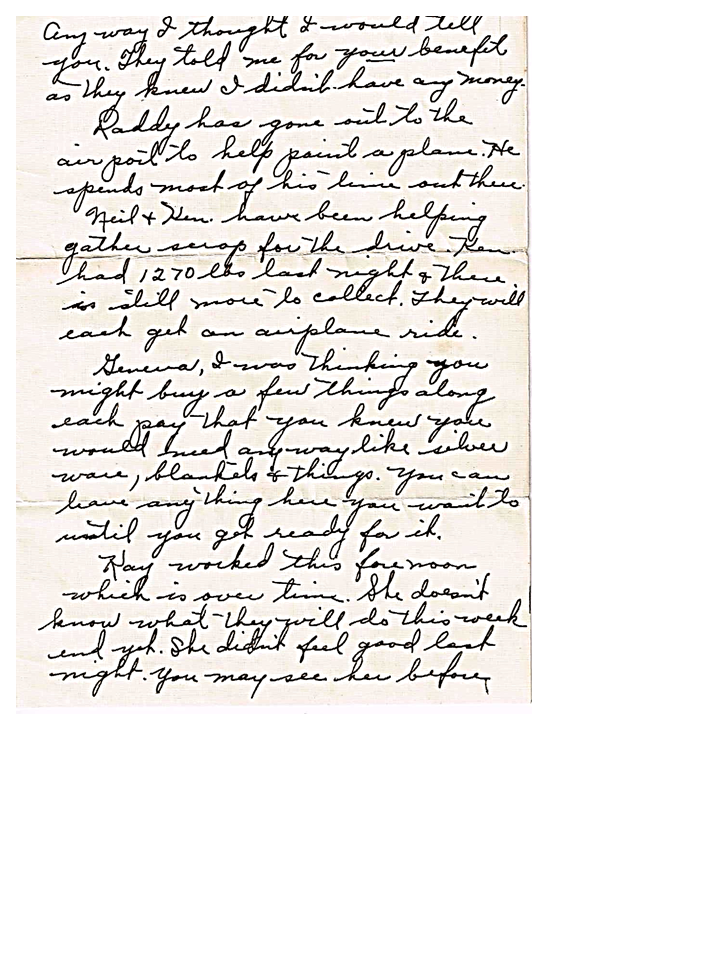 Any way I thought I would tell
you. They told me for your benefit
as they knew I didn't have any money.
Daddy has gone out to the
air port to help paint a plane. He
spends most of his time out there.
Neil & Ken. have been helping
gather scrap for the drive. Ken
had 1270 lbs last night & there
is still more to collect. They will
each get an airplane ride.
Geneva, I was thinking you
might buy a few things along
each pay that you knew you
would need anyway like silver
ware, blankets & things. You can
leave anything here you want to
until you get ready for it.
Kay worked this forenoon
which is over time. She doesn't
know what they will do this week
end yet. She didn't feel good last
night. You may see her before